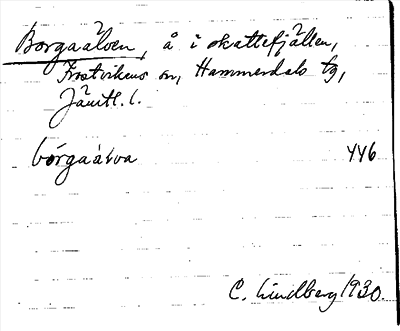 Borgaälven, å i skattefjällen,
Frostvikens sn, Hammerdals tg,
Jämtl. l.
bórgaáʌva 446
C. Lindberg 1930.